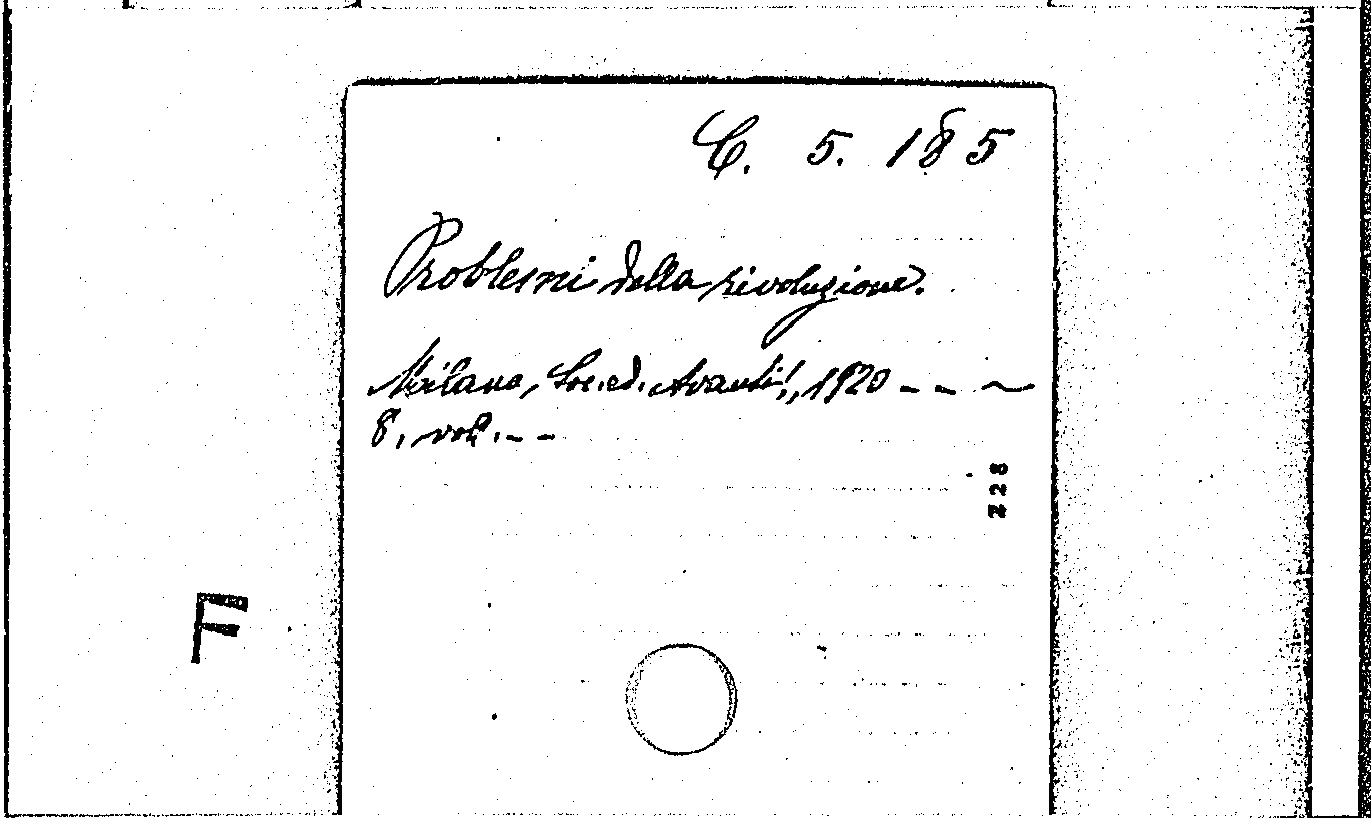 C. 5. 185
Problemi della rivoluzione.
Milano, Soc. ed. Avanti!, 1920 - - ~
8, vol. - -
228
F